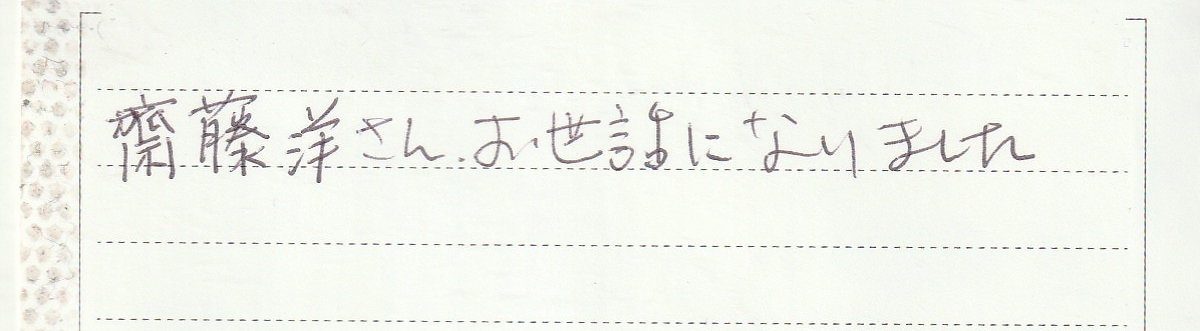 齋藤洋さん、お世話になりました